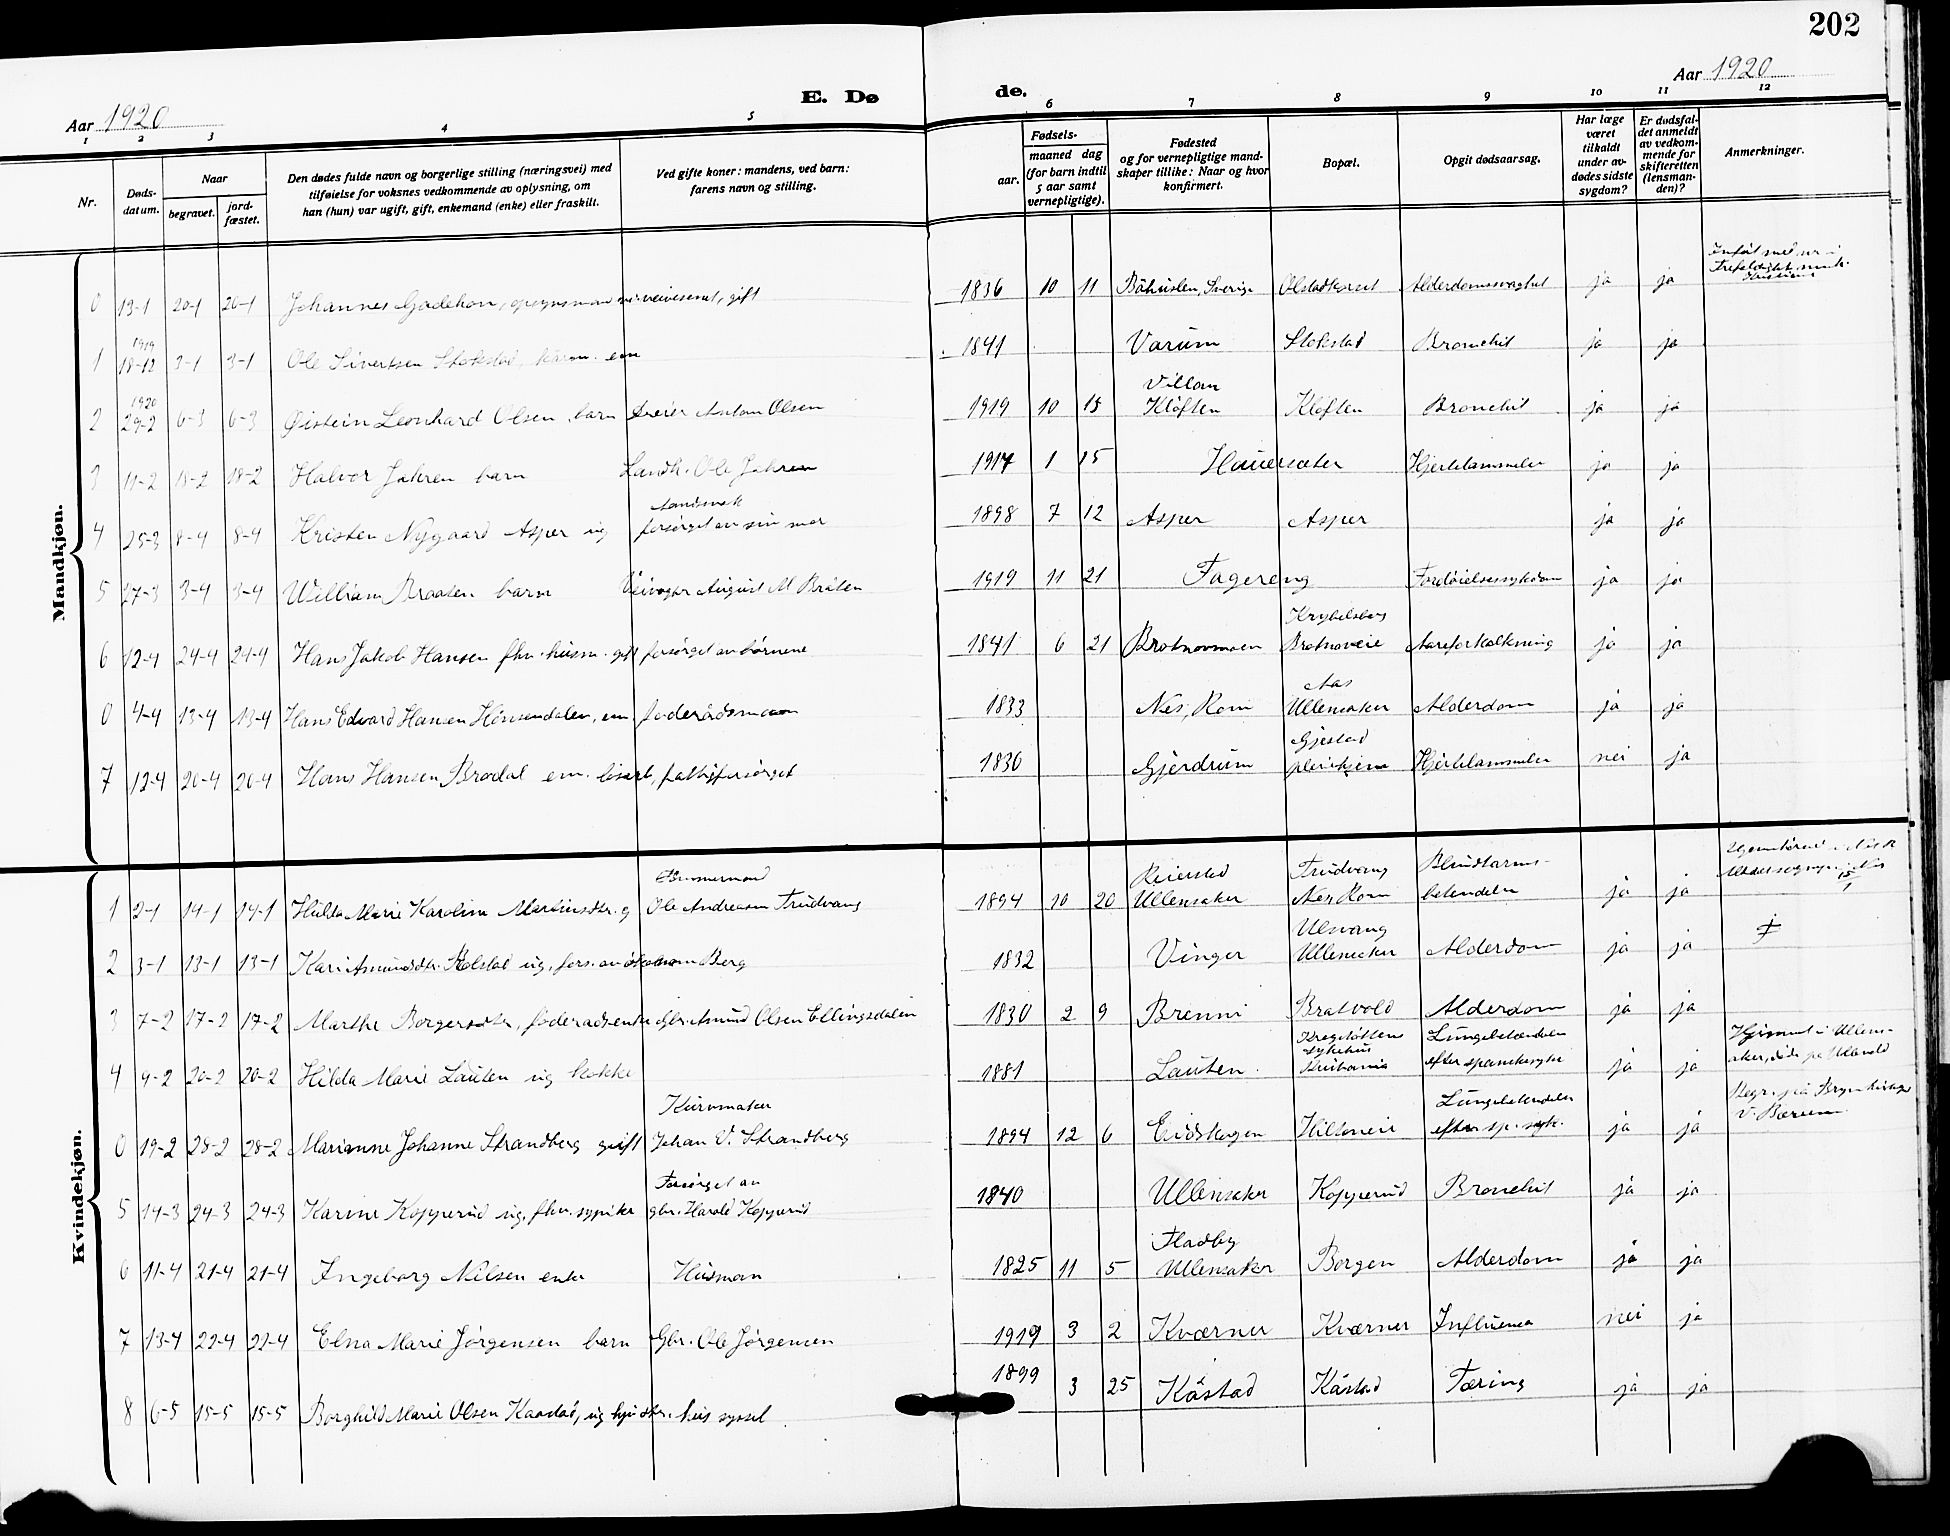 202
Aar 1920
E. Dø
de.
Aar 1920
1 2 3 4 5 6 7 8 9 10 11 12
Nr.
Døds-datum.
Naar
begravet.
jord-fæstet.
Den dødes fulde navn og borgerlige stilling (næringsvei) med
tilføielse for voksnes vedkommende av oplysning, om
han (hun) var ugift, gift, enkemand (enke) eller fraskilt.
Ved gifte koner: mandens, ved barn:
farens navn og stilling.
Fødsels-
aar.
maaned dag
(for barn indtil
5 aar samt
vernepligtige).
Fødested
og for vernepligtige mand-
skaper tillike: Naar og hvor
konfirmert.
Bopæl.
Opgit dødsaarsag.
Har læge
været
tilkaldt
under av-
dødes sidste
sygdom?
Er dødsfal-
det anmeldt
av vedkom-
mende for
skifteretten
(lensman-
den)?
Anmerkninger.
Mandkjøn.
0 13-1 20-1 20-1 Johannes Gadehon, opsynsmand veivesenet, gift 1836 10 11 Båhuslen, Sverige Alderdomssvaghet ja ja
1 1919 18-12 3-1 3-1 Ole Sivertsen Stokstad, em 1841 Varum Stokstad Bronchit ja ja
2 1920 29-2 6-3 6-3 Øistein Leonhard Olsen, barn Anton Olsen 1919 10 15 Villom Kløften Kløften Bronchit ja ja
3 11-2 18-2 18-2 Halvor Jahren barn Landh. Ole Jahren 1917 1 15 Hauersæter Hjertelammelse ja ja
4 25-3 8-4 8-4 Kristen Nygaard Asper ug forsørget av sin mor 1898 7 12 Asper Asper ja ja
5 27-3 3-4 3-4 William Braaten barn Veivogter August M Bråten 1919 11 21 Fagereng Fordøielsessykdom ja ja
6 12-4 24-4 24-4 Hans Jakob Hansen fhv. husm. gift forsørget av børnene 1841 6 21 Brotnovmoen Brotnoveie Aareforkalkning ja ja
0 4-4 13-4 13-4 Hans Edvard Hansen Hønsendalen, em. føderådsmann 1833 Nes, Rom Aas Ullensaker Alderdom ja ja
7 12-4 20-4 20-4 Hans Hansen Brodal em. fattigforsørget 1830 Gjerdrum Gjestad pleiehjem Hjertelammelse nei ja
Kvindekjøn.
1 2-1 14-1 14-1 Hilda Marie Karoline Martinsdtr. g Ole Andreasen Trudvang 1894 10 20 Reierstad Ullensaker Trudvang Nes Rom Blindtarms-betendelse ja ja
2 3-1 13-1 13-1 Kari Amundsdtr. Rolstad ug. Berg 1832 Vinger Ulvang Ullensaker Alderdom ja ja
3 7-2 17-2 17-2 Marthe Borgersdtr, føderadsenke Gbr. Amund Olsen Ellingsdalen 1830 2 9 Brenni Bratvold Alderdom ja ja
4 9-2 20-2 20-2 Hilda Marie Lauten ug kokke 1881 Lauten Krogstøtten sykehus Kristiania Lungebetændelse efter spanskesyke ja ja Hjemmet i Ullens-aker, døde på Ullevold
0 19-2 28-2 28-2 Marianne Johanne Strandberg gift Kurvmaker Johan V. Strandberg 1894 12 6 Eidskogen Hiltonveie Lungebetendelse efter sp. syke. ja ja Begr. på Bryn kirkegr v. Bærum
5 14-3 24-3 24-3 Karine Kopperud ug. fhv. sypike Forsørget av gbr. Harald Kopperud 1840 Ullensaker Kopperud Bronchit ja ja
6 11-4 21-4 21-4 Ingeborg Nilsen enke Husman 1825 11 5 Fladby Ullensaker Borgen Alderdom ja ja
7 13-4 22-4 22-4 Elna Marie Jørgensen barn Gbr. Ole Jørgensen 1919 3 2 Kværner Kværner Influensa nei ja
8 6-5 15-5 15-5 Borghild Marie Olsen Kaastad, ug hus syssel 1899 3 25 Kåstad Kåstad Tæring ja ja